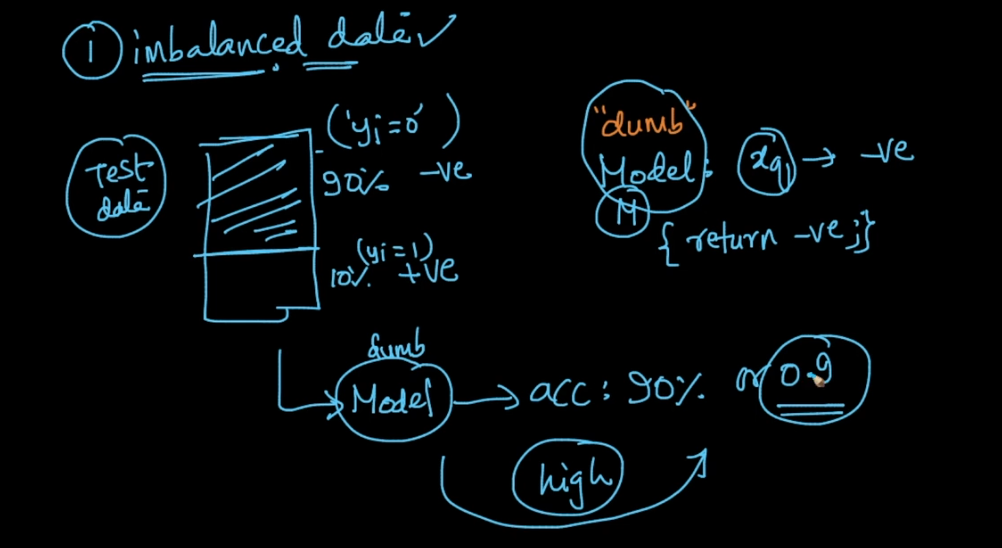 ① imbalanced data ✓
Test data
(yi=0)
90% -ve
(yi=1)
10% +ve
"dumb"
Model: xq → -ve
M
{ return -ve; }
dumb
Model → acc: 90% or 0.9
high